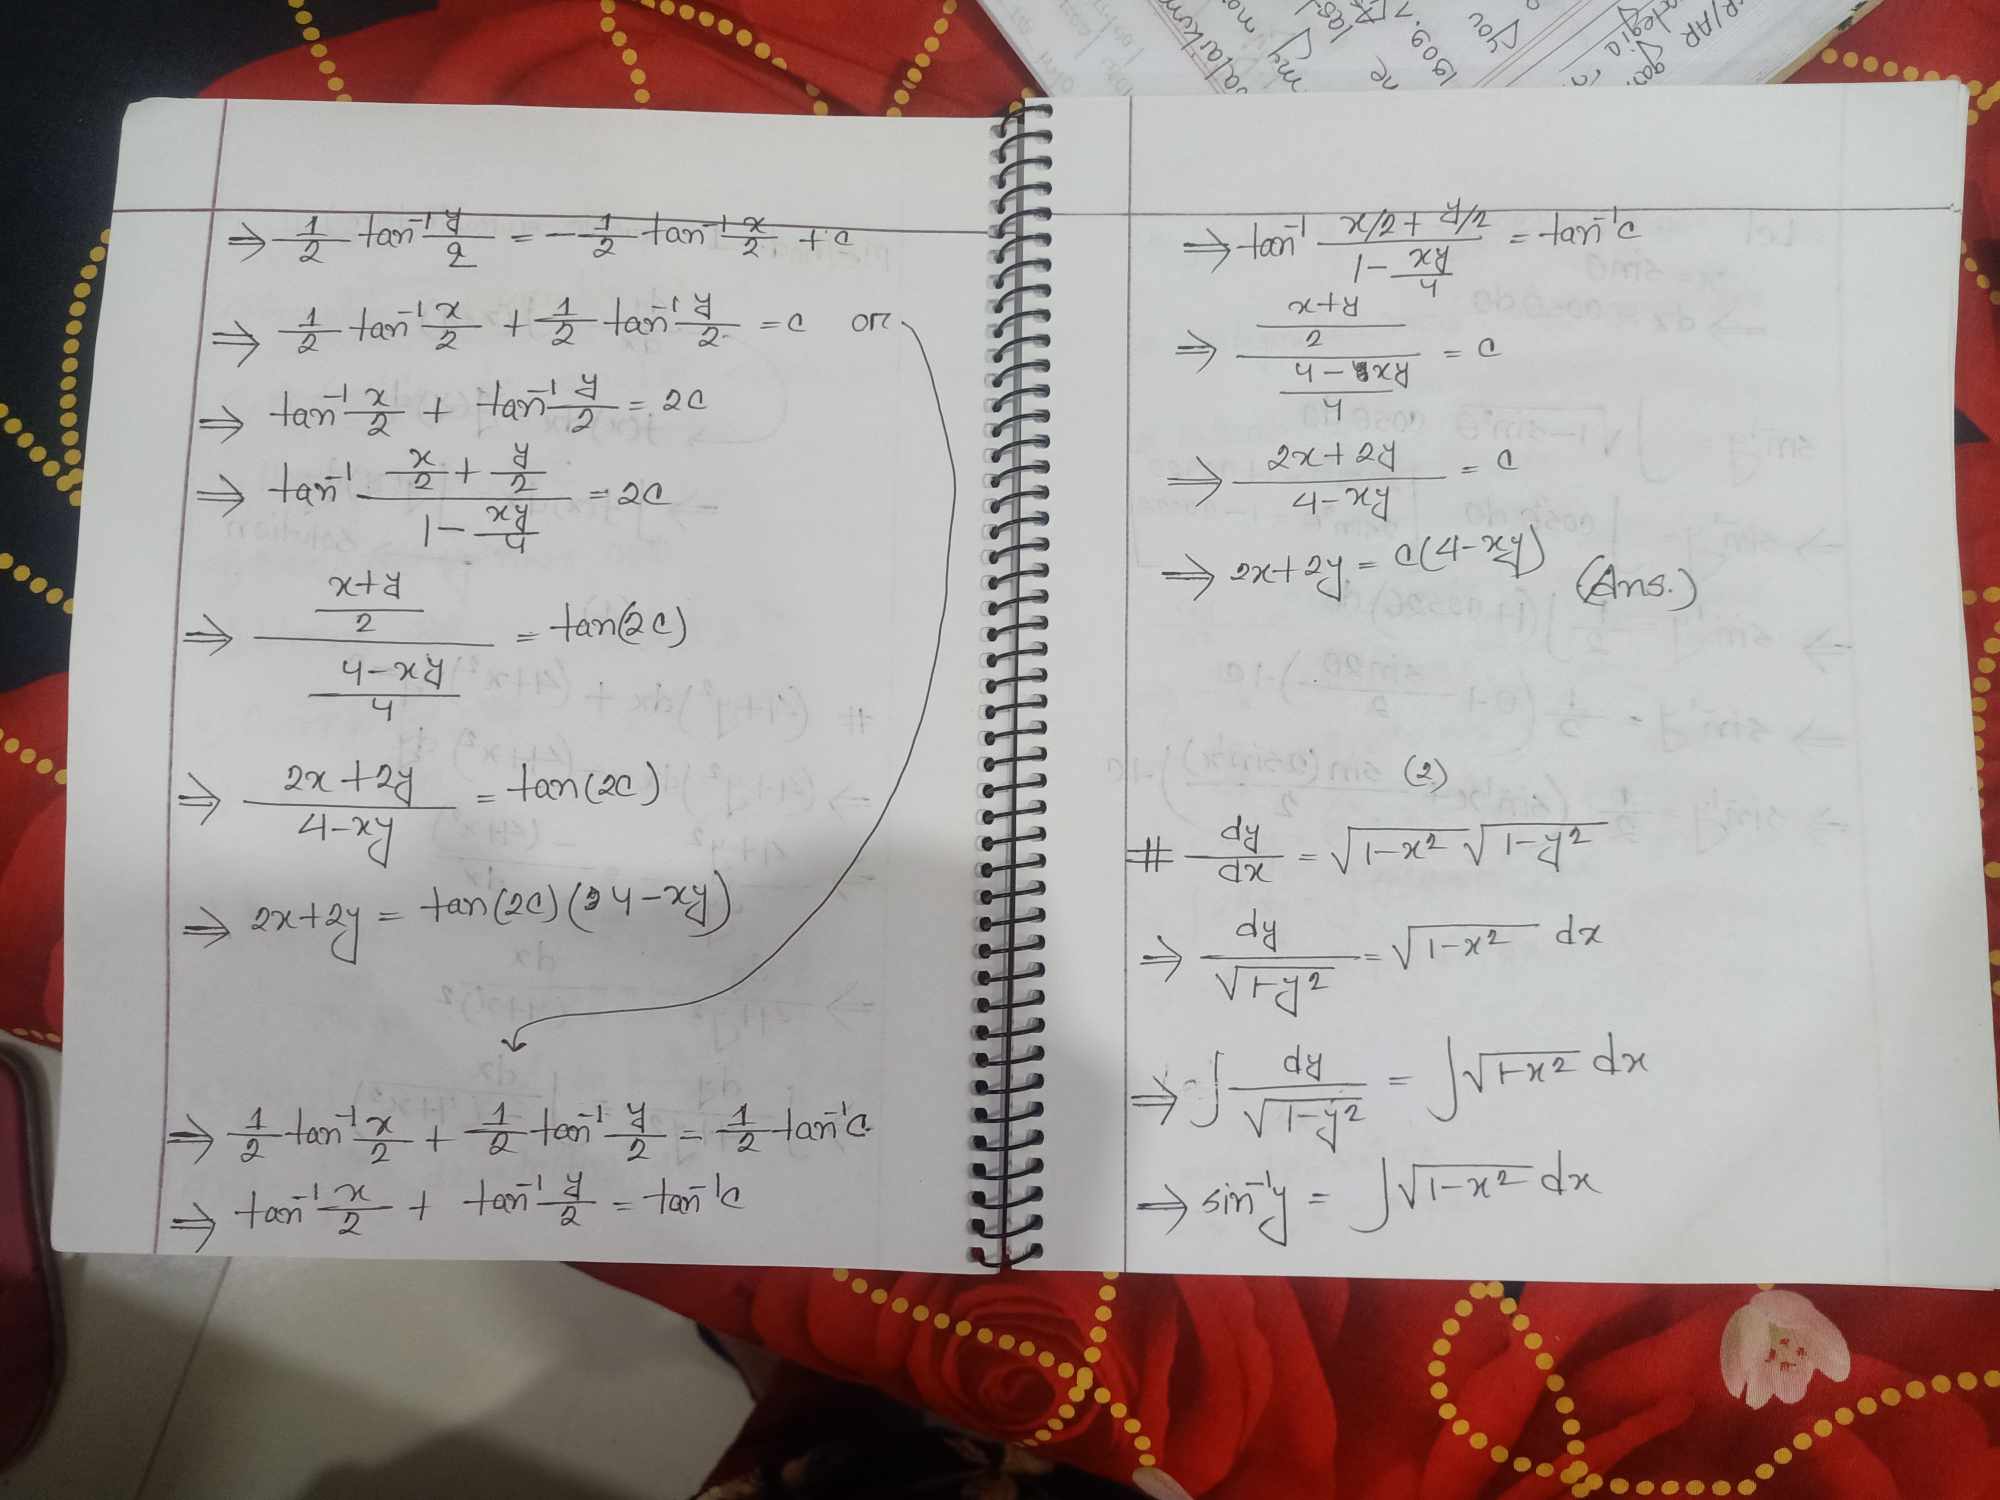 ⇒ 1/2 tan⁻¹ y/2 = -1/2 tan⁻¹ x/2 + c
⇒ 1/2 tan⁻¹ x/2 + 1/2 tan⁻¹ y/2 = c or
⇒ tan⁻¹ x/2 + tan⁻¹ y/2 = 2c
⇒ tan⁻¹ (x/2 + y/2)/(1 - xy/4) = 2c
⇒ ((x+y)/2)/((4-xy)/4) = tan(2c)
⇒ (2x+2y)/(4-xy) = tan(2c)
⇒ 2x+2y = tan(2c)(4-xy)
⇒ 1/2 tan⁻¹ x/2 + 1/2 tan⁻¹ y/2 = 1/2 tan⁻¹c
⇒ tan⁻¹ x/2 + tan⁻¹ y/2 = tan⁻¹c
⇒ tan⁻¹ (x/2 + y/2)/(1 - xy/4) = tan⁻¹c
⇒ ((x+y)/2)/((4-xy)/4) = c
⇒ (2x+2y)/(4-xy) = c
⇒ 2x+2y = c(4-xy) (Ans.)
(2)
# dy/dx = √(1-x²) √(1-y²)
⇒ dy/√(1-y²) = √(1-x²) dx
⇒ ∫ dy/√(1-y²) = ∫√(1-x²) dx
⇒ sin⁻¹y = ∫√(1-x²) dx